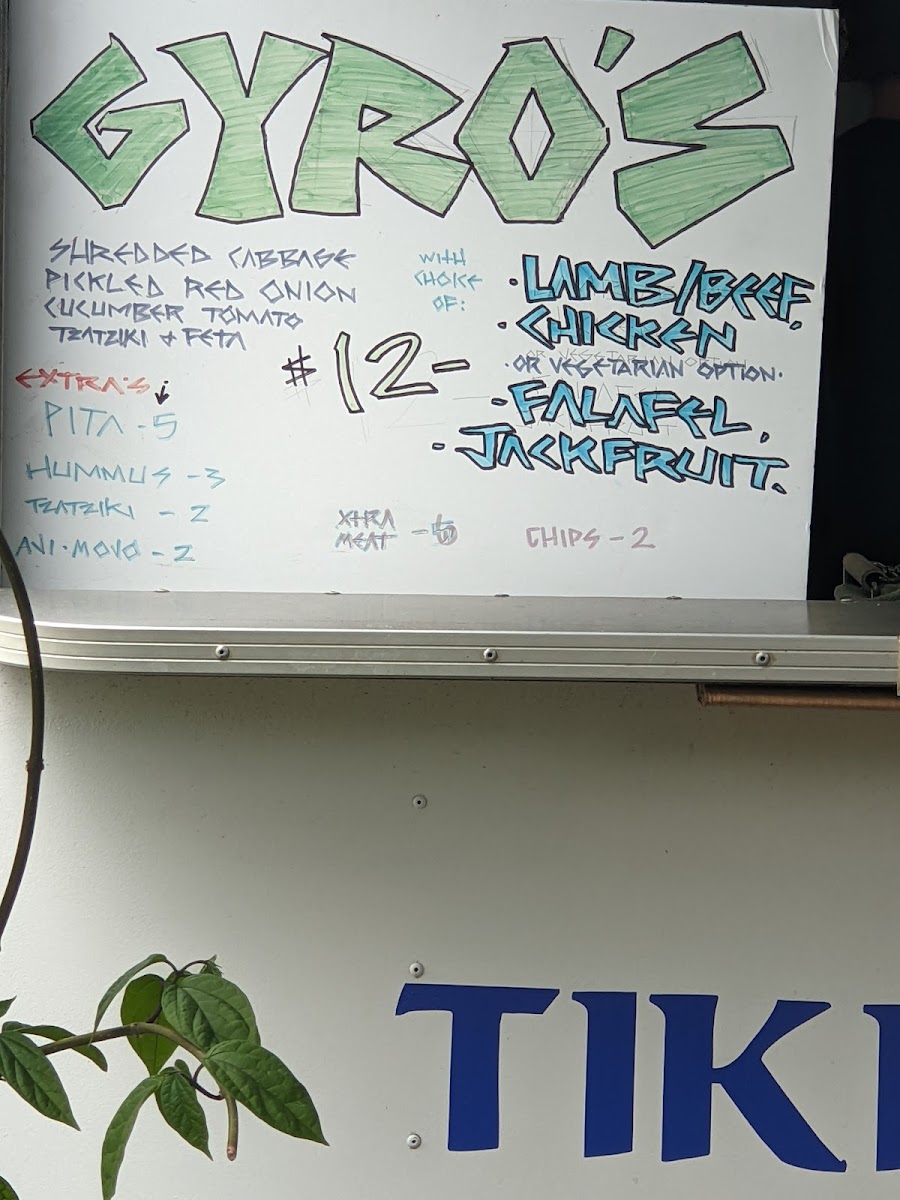 GYRO'S
SHREDDED CABBAGE
PICKLED RED ONION
CUCUMBER TOMATO
TZATZIKI & FETA
WITH
CHOICE
OF:
· LAMB/BEEF,
· CHICKEN
· OR VEGETARIAN OPTION·
· FALAFEL,
· JACKFRUIT.
$12-
EXTRA'S
PITA - 5
HUMMUS - 3
TZATZIKI - 2
AJI·MOVO - 2
XTRA
MEAT - 5
CHIPS - 2
TIK